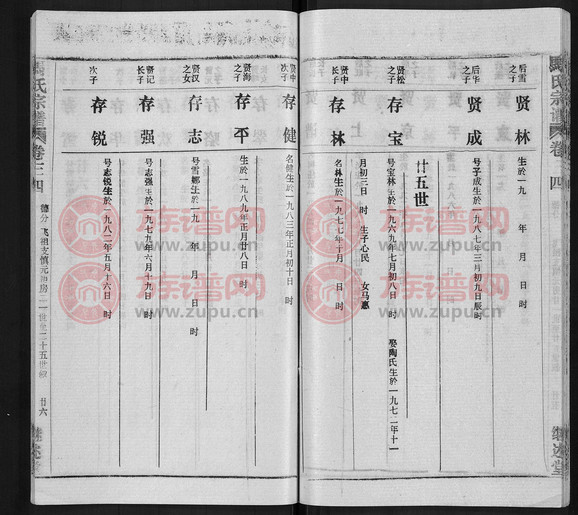 后雪之子
贤林
生於一九 年 月 日 时
后华之子
贤成
号子成生於一九八七年三月初九日辰时
廿五世
贤松之子
存宝
号宝林生於一九六九年七月初八日 时 娶陶氏生於一九七二年十一
月初三日 时 生子心民 女马惠
贤中长子
存林
名林生於一九七七年十月 日 时
贤中次子
存健
名健生於一九八三年正月初十日 时
贤海之子
存平
生於一九八九年正月廿八日 时
贤汉之女
存志
号雪娜生於一九 年 月 日 时
贤记长子
存强
号志强生於一九七九年六月十九日 时
次子
存锐
号志锐生於一九八二年五月十六日 时
氏宗谱
卷三四
廿六
继述堂
氏宗谱
卷 四
继述堂
族谱网
www.zupu.cn
族谱网
www.zupu.cn